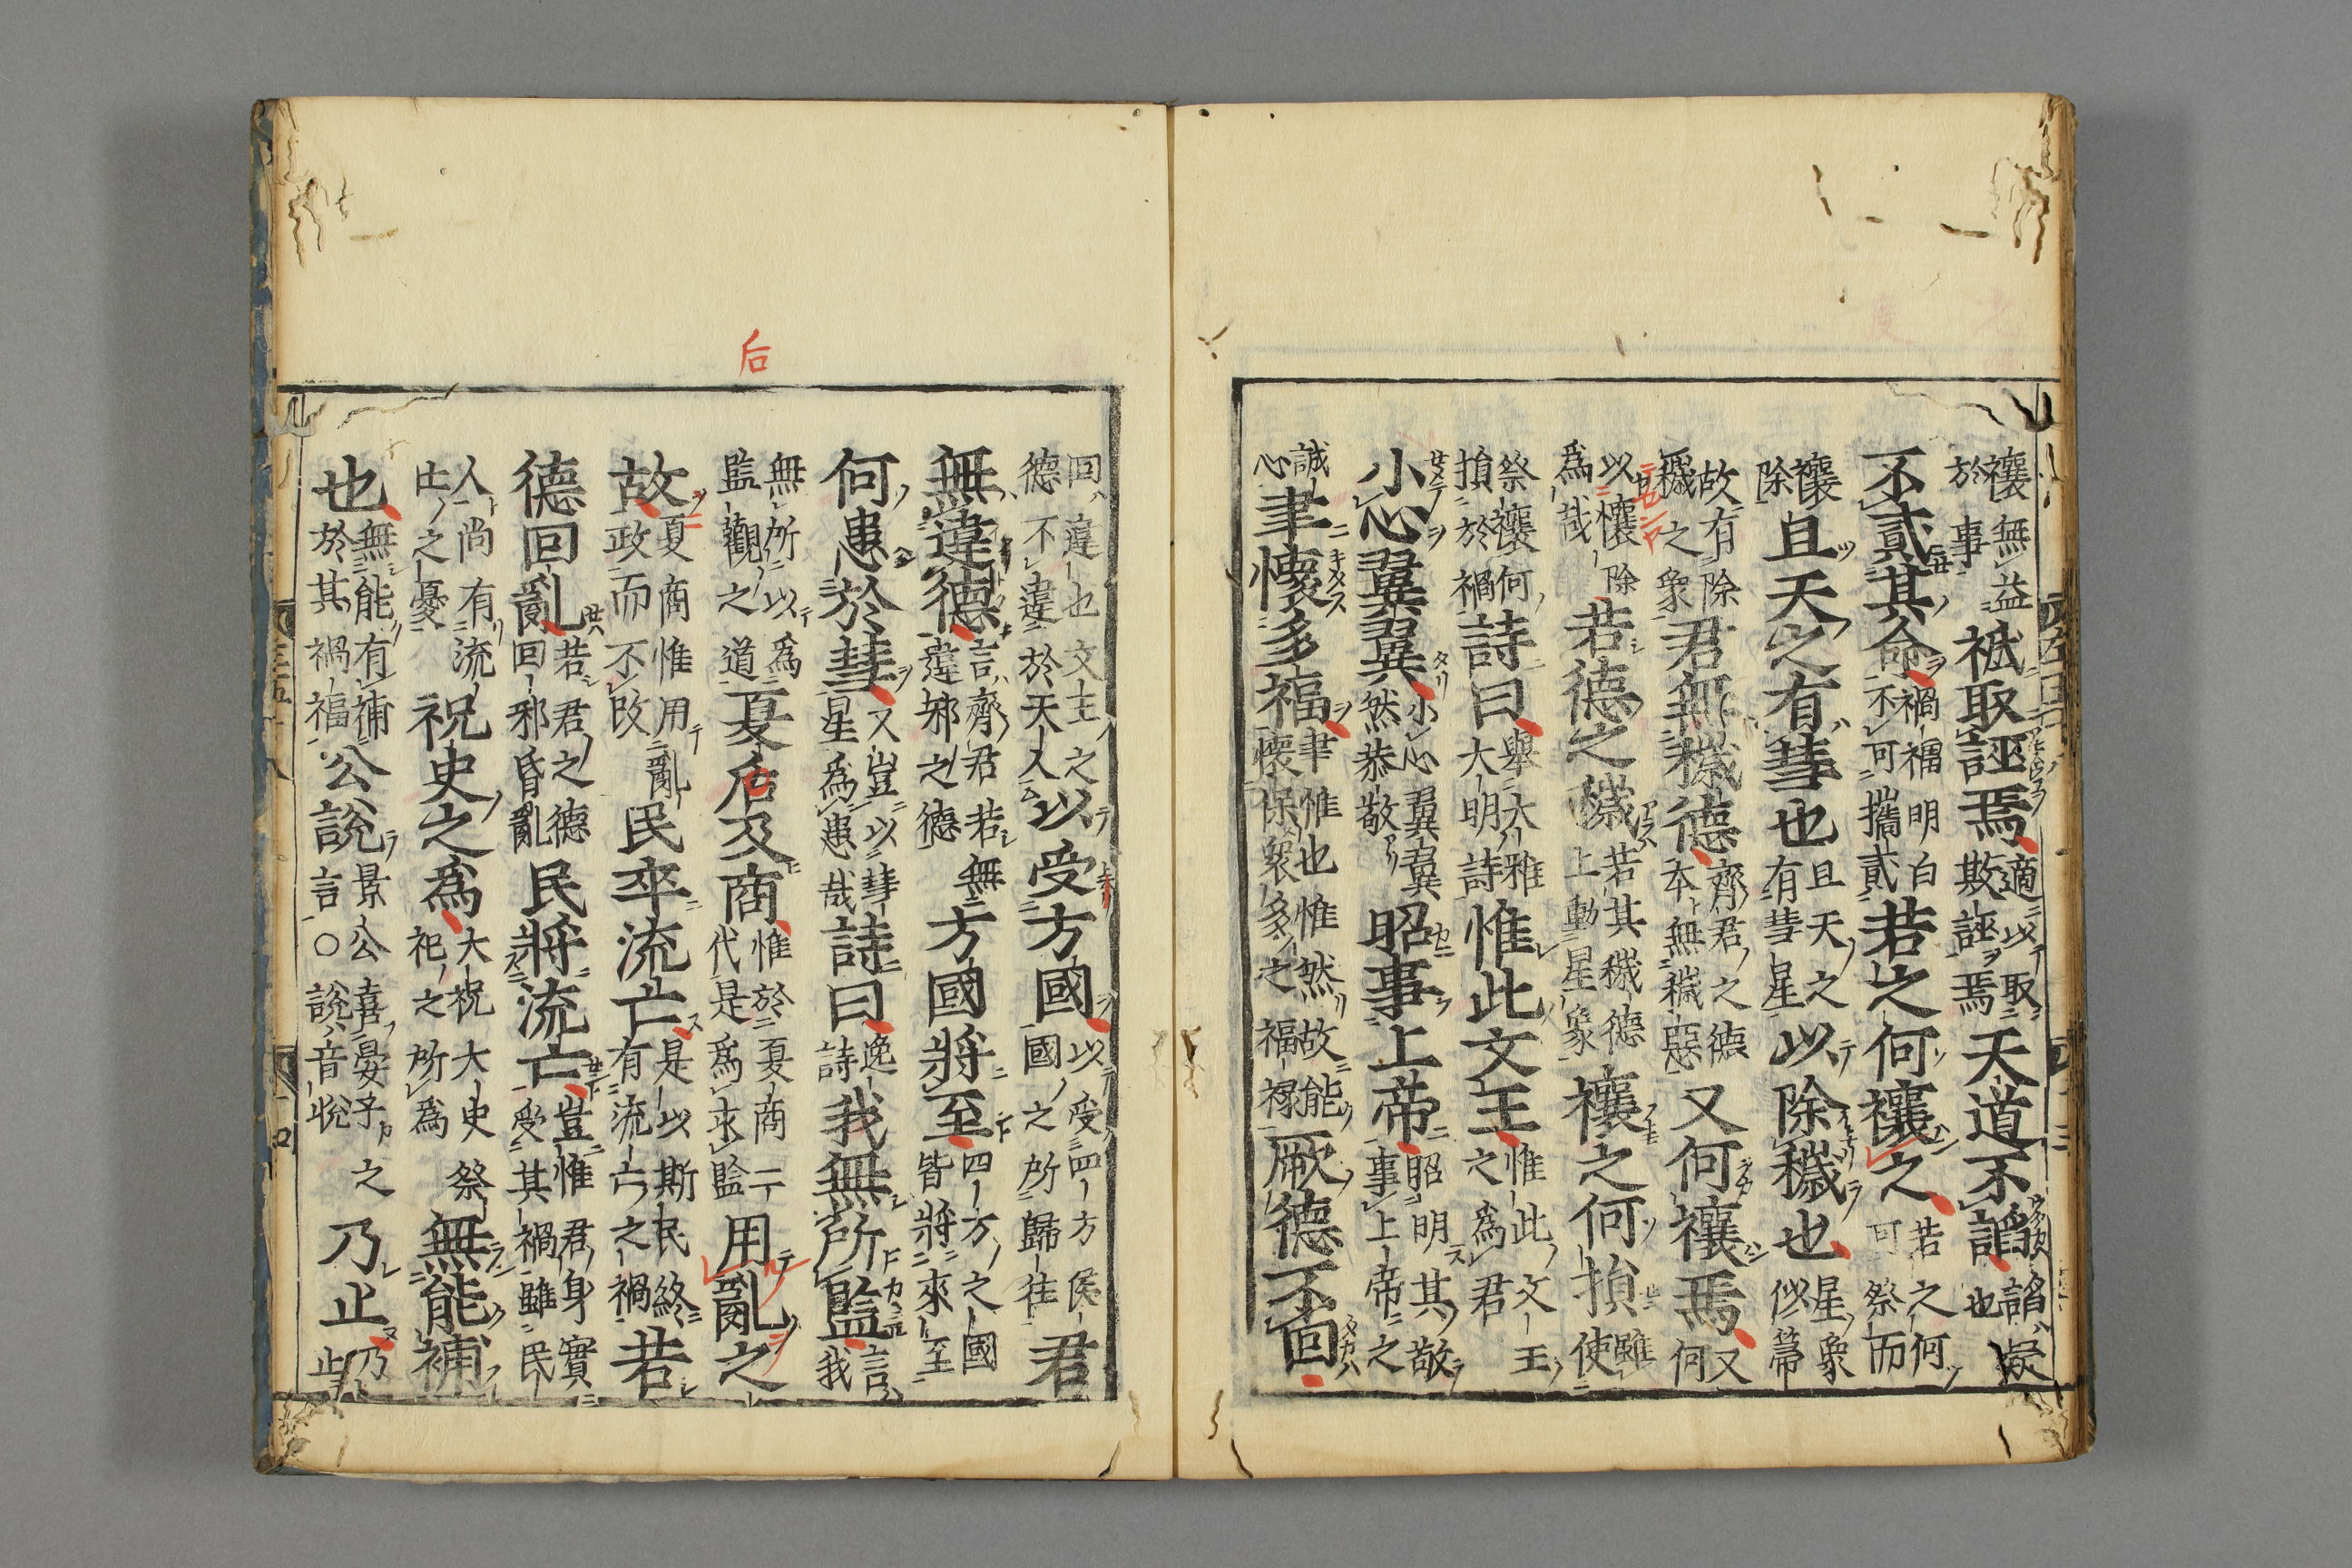 禳無益於事祗取誣焉適以取欺誣焉天道不謟謟疑也
不貳其命禍福明白不可攜貳若之何禳之若之何可祭而
禳除且天之有彗也且天之有彗星以除穢也星象似箒
故有除穢之象君無穢德齊君之德本無穢惡又何禳焉又何
以禳除爲哉若德之穢若其穢德上動星象禳之何損雖使
祭禳何損於禍詩曰舉大雅大明詩惟此文王惟此文王之爲君
小心翼翼小心翼翼然恭敬昭事上帝昭明其敬事上帝之
誠心聿懷多福聿惟也惟然故能懷保衆多之福祿厥德不回
回違也文王之德不違於天人以受方國以受四方侯國之所歸往君
無違德言齊君若無違邪之德方國將至四方之國皆將來至
何患於彗又豈以彗星爲患哉詩曰逸詩我無所監言我
后
無所以爲監觀之道夏后及商惟於夏商二代是爲求監用亂之
故夏商惟用亂政而不改民卒流亡是以斯民終有流亡之禍若
德回亂若君之德回邪昏亂民將流亡豈惟君身實受其禍雖民
人尚有流亡之憂祝史之爲大祝大史祭祀之所爲無能補
也無能有補於其禍福公說景公喜晏子之言○說音悅乃止乃止